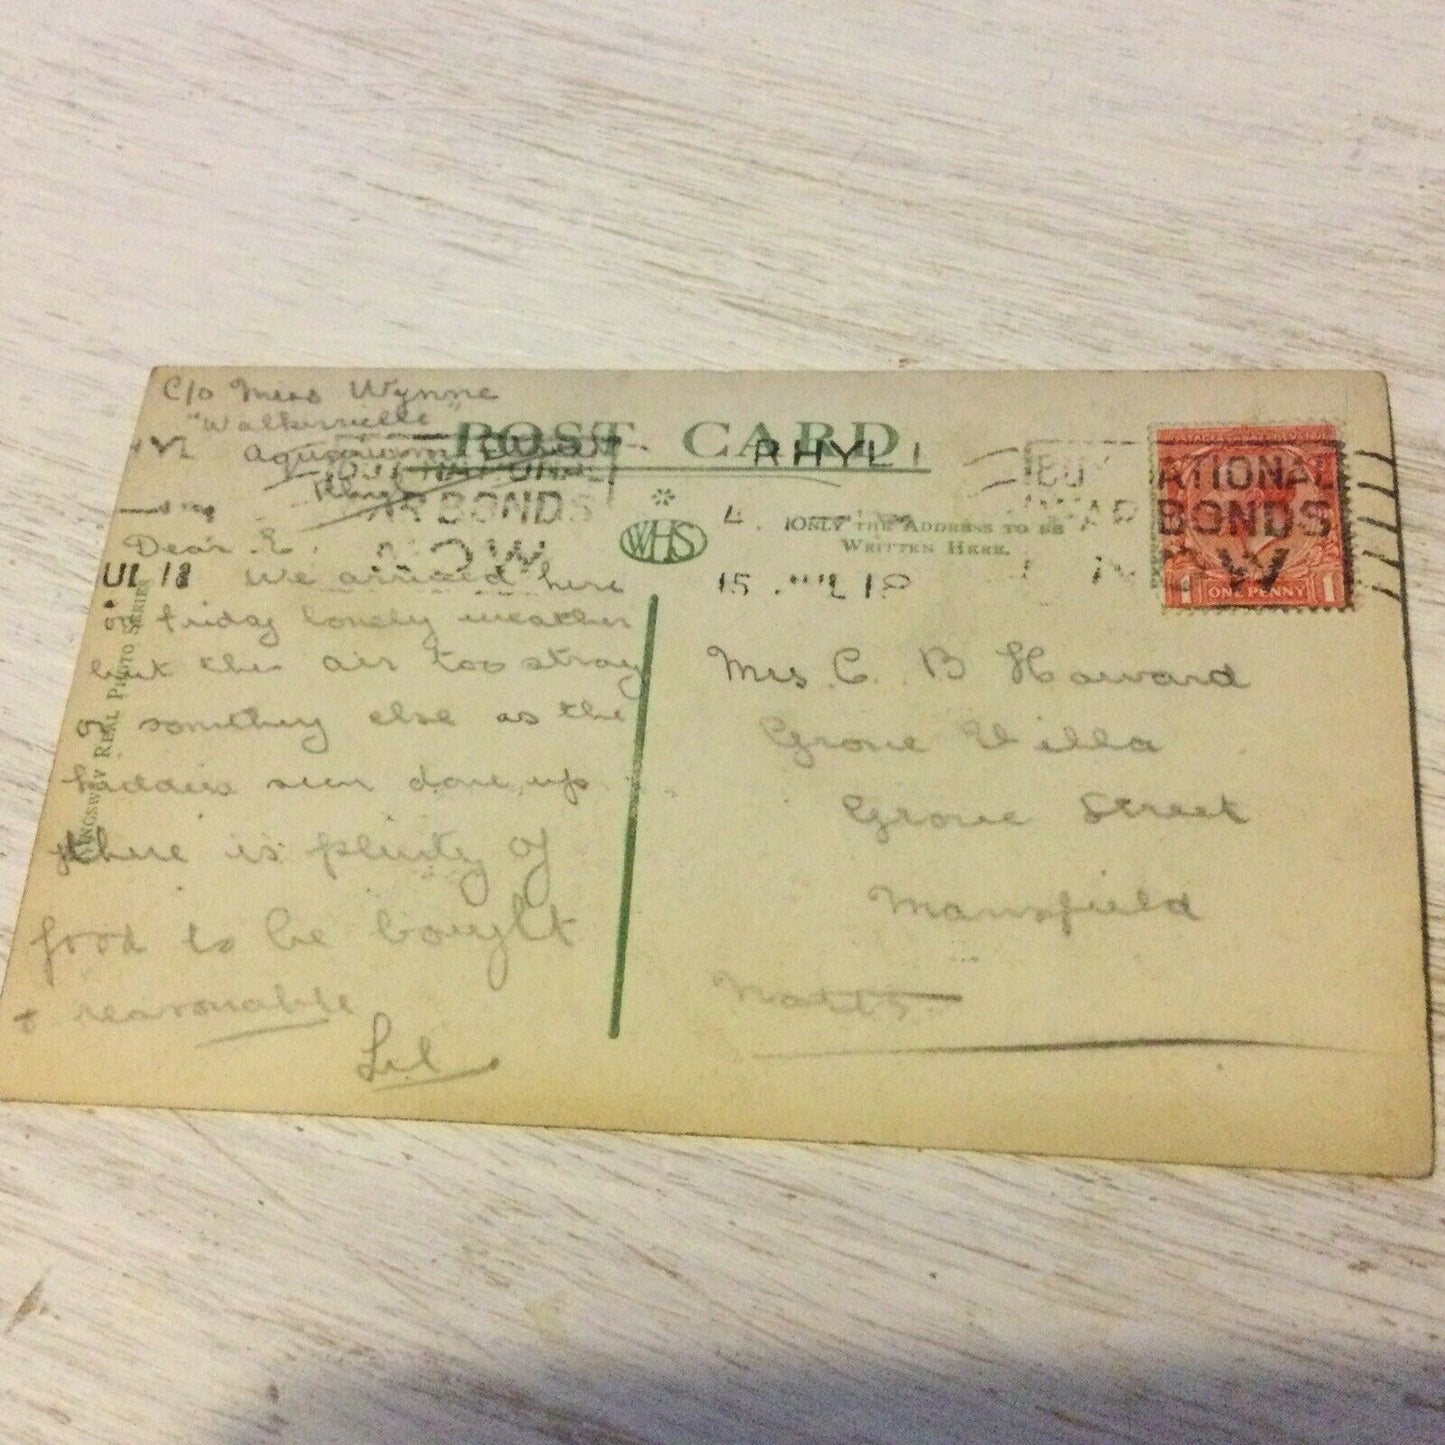 C/o Miss Wynne
"Walkerville"
Rhyl
Dear E.
We arrived here
friday lovely weather
but the air too strong
or something else as the
kiddies seem done up
there is plenty of
food to be bought
& reasonable
Lil
POST CARD
RHYL
BUY NATIONAL
WAR BONDS
NOW
BUY NATIONAL
WAR BONDS
NOW
UL 18
WHS
ONLY THE ADDRESS TO BE
WRITTEN HERE.
15 JUL 18
1 ONE PENNY 1
KINGSWAY REAL PHOTO SERIES
Mrs C. B Howard
Grove Villa
Grove Street
Mansfield
Notts.